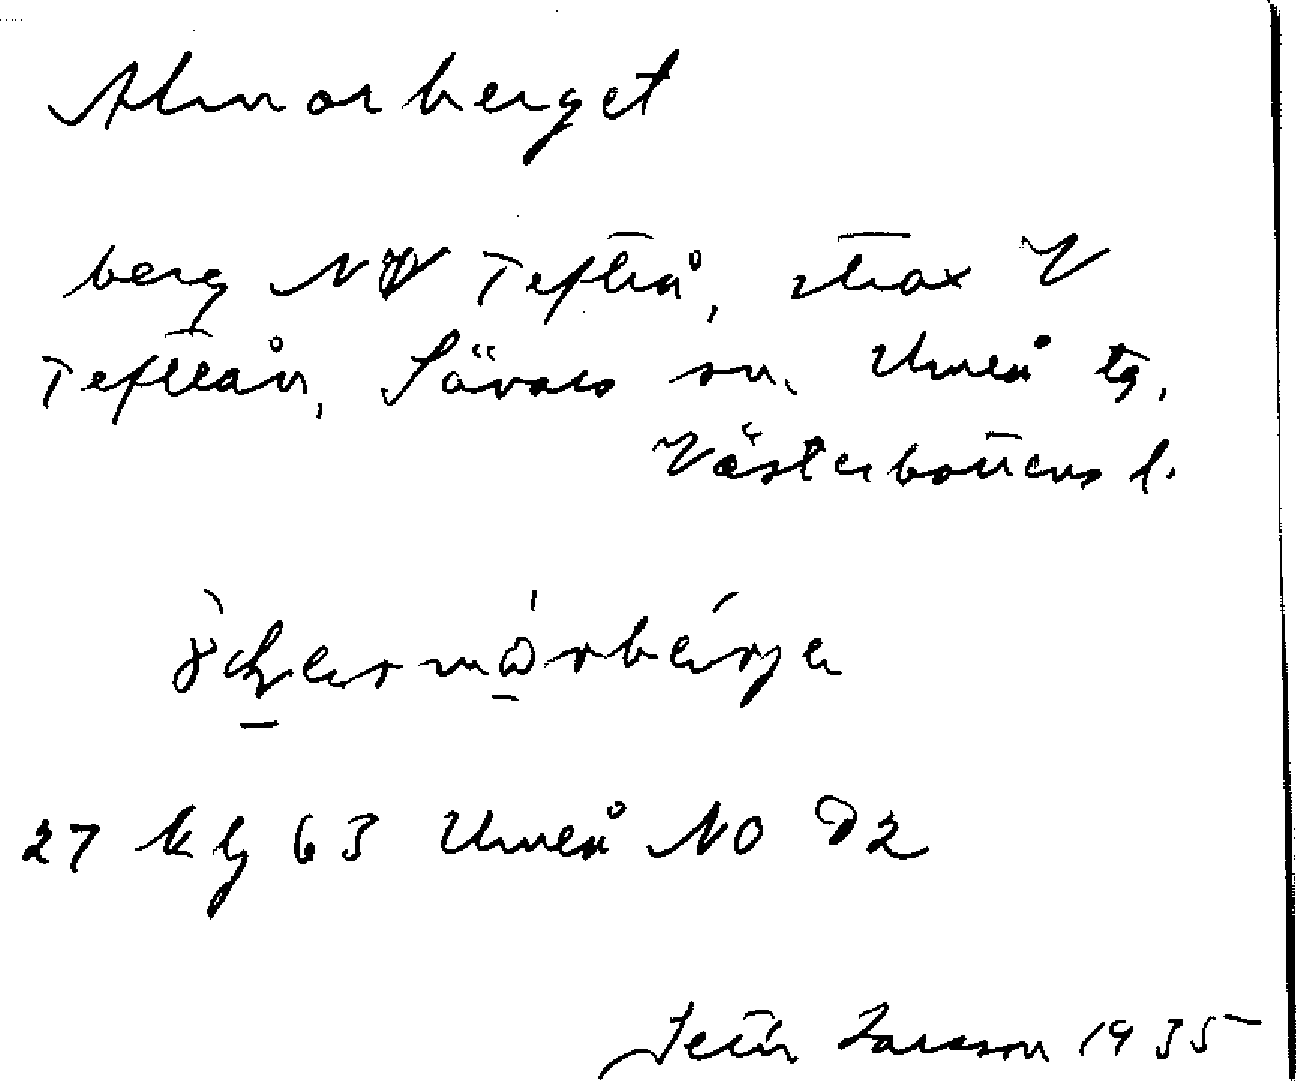 Almorberget
berg NV Tefteå, strax V
Tefteån, Sävars sn. Umeå tg.
Västerbottens l.
27 Kg 63 Umeå NO D2
Setir Larsson 1935